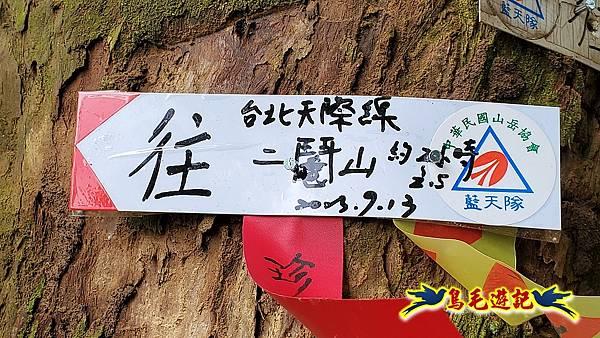 藍天隊
台北天際線
往
二鬮山 約2小時
2.5
2023.9.13
中華民國山岳協會
藍天隊
珍
鳥毛遊記